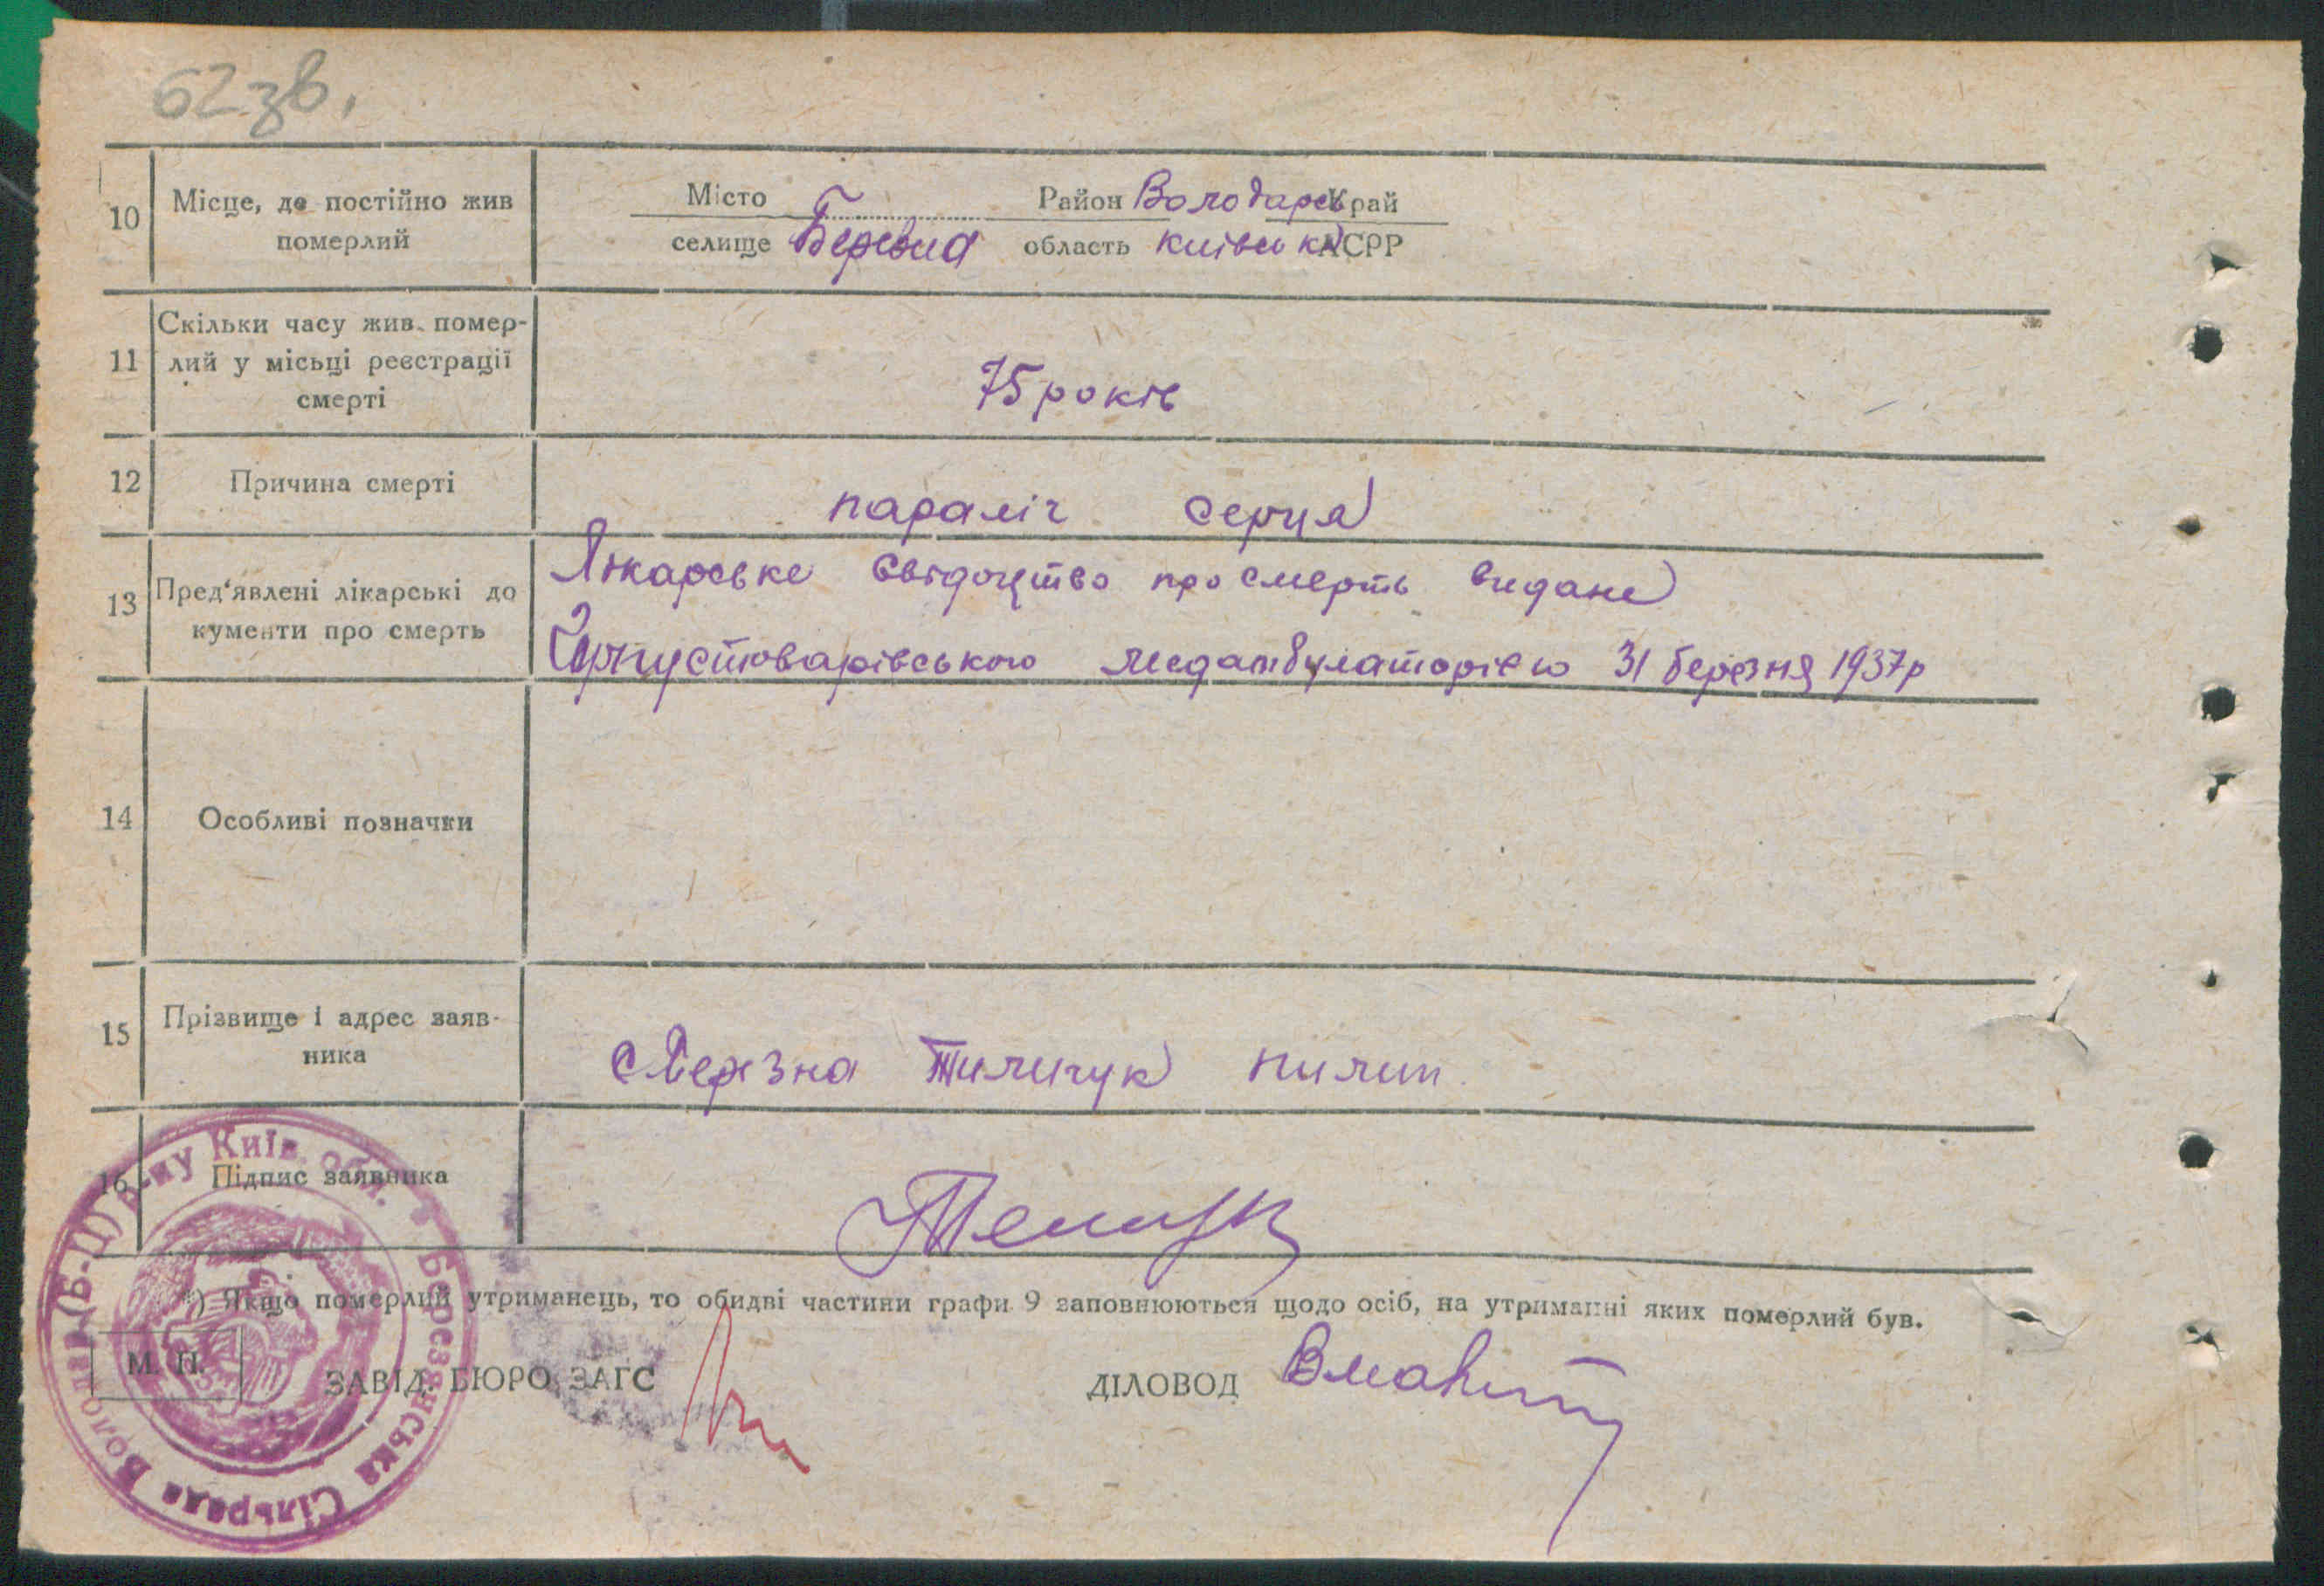 62 зв.
10 Місце, де постійно жив померлий
Місто Район Володарсь Край
селище Березна область Київська АСРР
11 Скільки часу жив помер-
лий у місьці реєстрації
смерті
75 років
12 Причина смерті
параліч серця
13 Пред'явлені лікарські до
кументи про смерть
Лікарське свідоцтво про смерть видане
медамбулаторією 31 березня 1937р
14 Особливі позначки
15 Прізвище і адрес заяв-
ника
с Березна Тиличук Пилип
16 Підпис заявника
*) Якщо померлий утриманець, то обидві частини графи 9 заповнюються щодо осіб, на утриманні яких померлий був.
М. П.
ЗАВІД. БЮРО ЗАГС
ДІЛОВОД
Березянська Сільрада Володар (Б-Ц) р-ну Київ. обл.